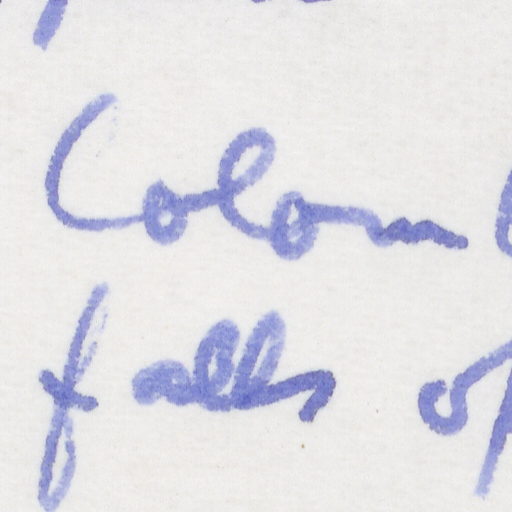 Colom
falls of